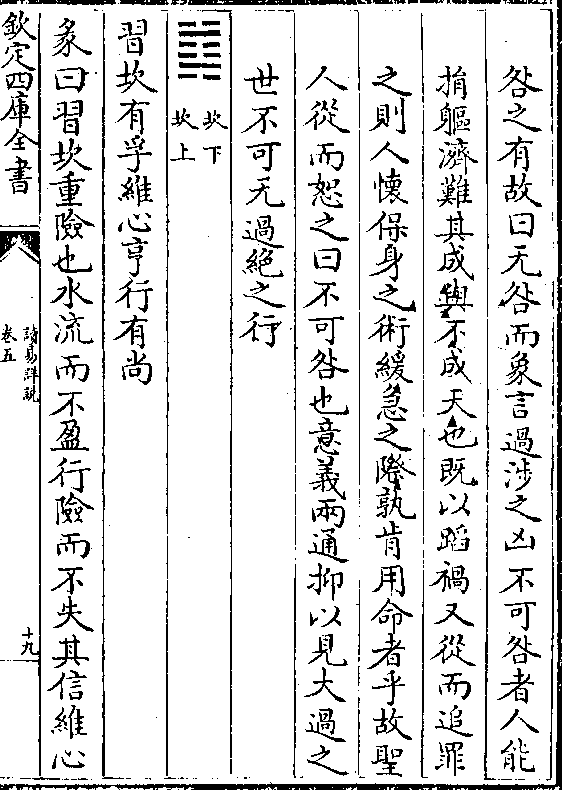 咎之有故曰无咎而象言過涉之凶不可咎者人能
捐軀濟難其成與不成天也既以蹈禍又從而追罪
之則人懷保身之術緩急之際孰肯用命者乎故聖
人從而恕之曰不可咎也意義兩通抑以見大過之
世不可无過絶之行
䷜
坎下
坎上
習坎有孚維心亨行有尚
彖曰習坎重險也水流而不盈行險而不失其信維心
欽定四庫全書
讀易詳說
卷五
十九